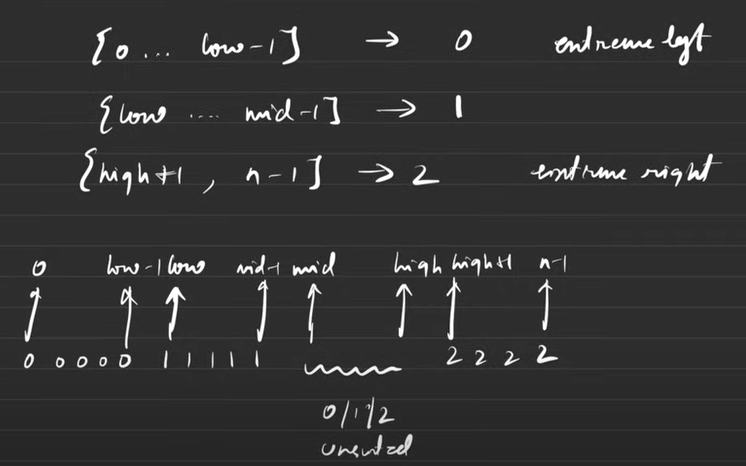 [0 ... low-1] → 0 extreme left
[low .... mid-1] → 1
[high+1 , n-1] → 2 extreme right
0 low-1 low mid-1 mid high high+1 n-1
0 0 0 0 0 1 1 1 1 1 2 2 2 2
0/1/2
unsorted